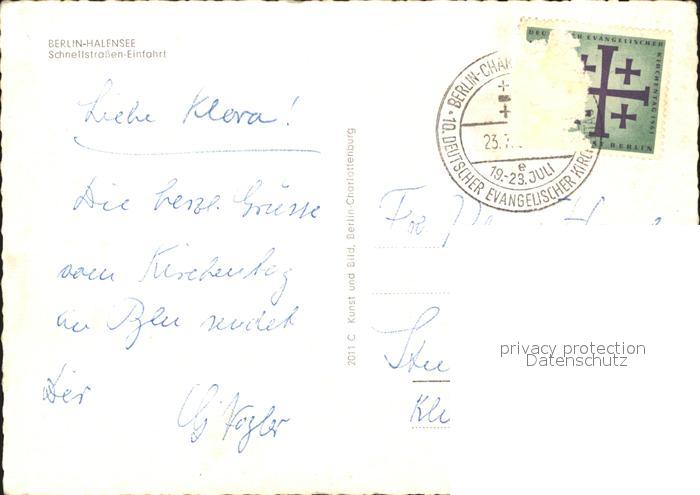 BERLIN-HALENSEE
Schnellstraßen-Einfahrt
Liebe Klera!
Die herzl. Grüsse
vom Kirchentag
an Bln sendet
Dir
Vogler
2011 C Kunst und Bild, Berlin-Charlottenburg
BERLIN-CHAR
23.7.
e
19.-23. JULI
* 10. DEUTSCHER EVANGELISCHER KIRCH
EVANGELISCHER
KIRCHENTAG 1961
BERLIN
privacy protection
Datenschutz